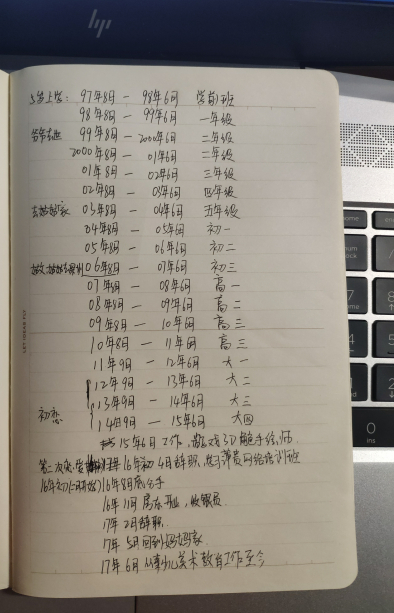 hp
5岁上学: 97年8月 — 98年6月 学前班
98年8月 — 99年6月 一年级
99年8月 — 2000年6月 二年级
2000年8月 — 01年6月 二年级
01年8月 — 02年6月 三年级
02年8月 — 03年6月 四年级
去姑姑家 03年8月 — 04年6月 五年级
04年8月 — 05年6月 初一
05年8月 — 06年6月 初二
06年8月 — 07年6月 初三
07年8月 — 08年6月 高一
08年8月 — 09年6月 高二
09年8月 — 10年6月 高三
10年8月 — 11年6月 高三
11年9月 — 12年6月 大一
12年9月 — 13年6月 大二
初恋 13年9月 — 14年6月 大三
14年9月 — 15年6月 大四
15年6月 工作, 游戏3D 师.
第二次恋爱 16年初 4月辞职, 网络培训班
16年初 16年8月底分手
16年11月 房东开业, 收银员.
17年2月辞职.
17年5月回到妈妈家.
17年6月 从事少儿美术教育工作至今
home
7
4
1
0
ins